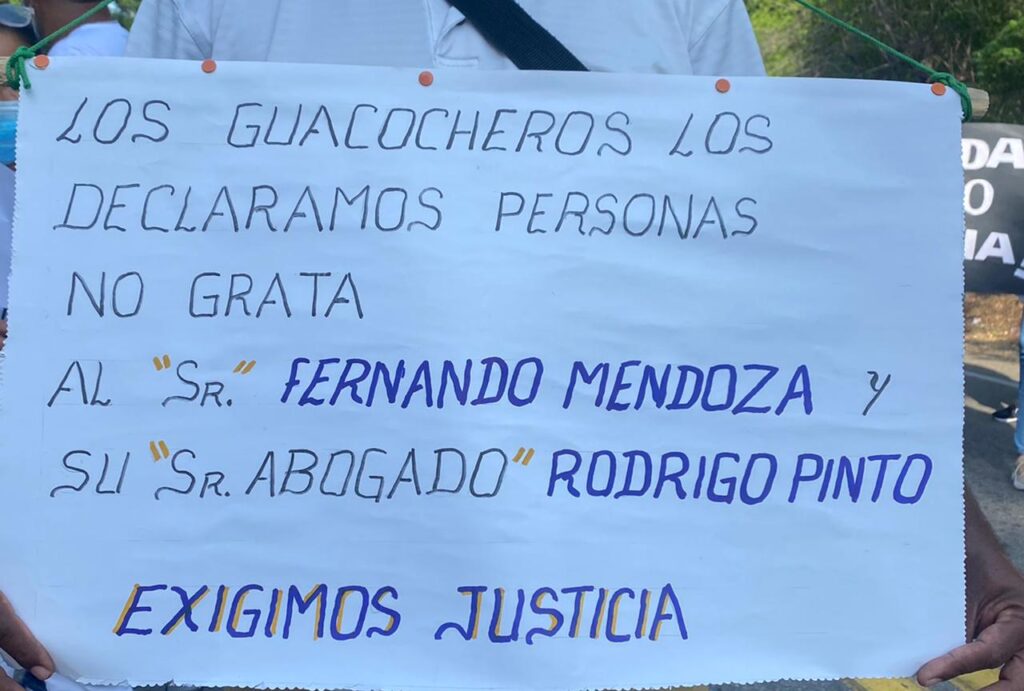 LOS GUACOCHEROS LOS
DECLARAMOS PERSONAS
NO GRATA
AL "SR." FERNANDO MENDOZA Y
SU "SR. ABOGADO" RODRIGO PINTO
EXIGIMOS JUSTICIA